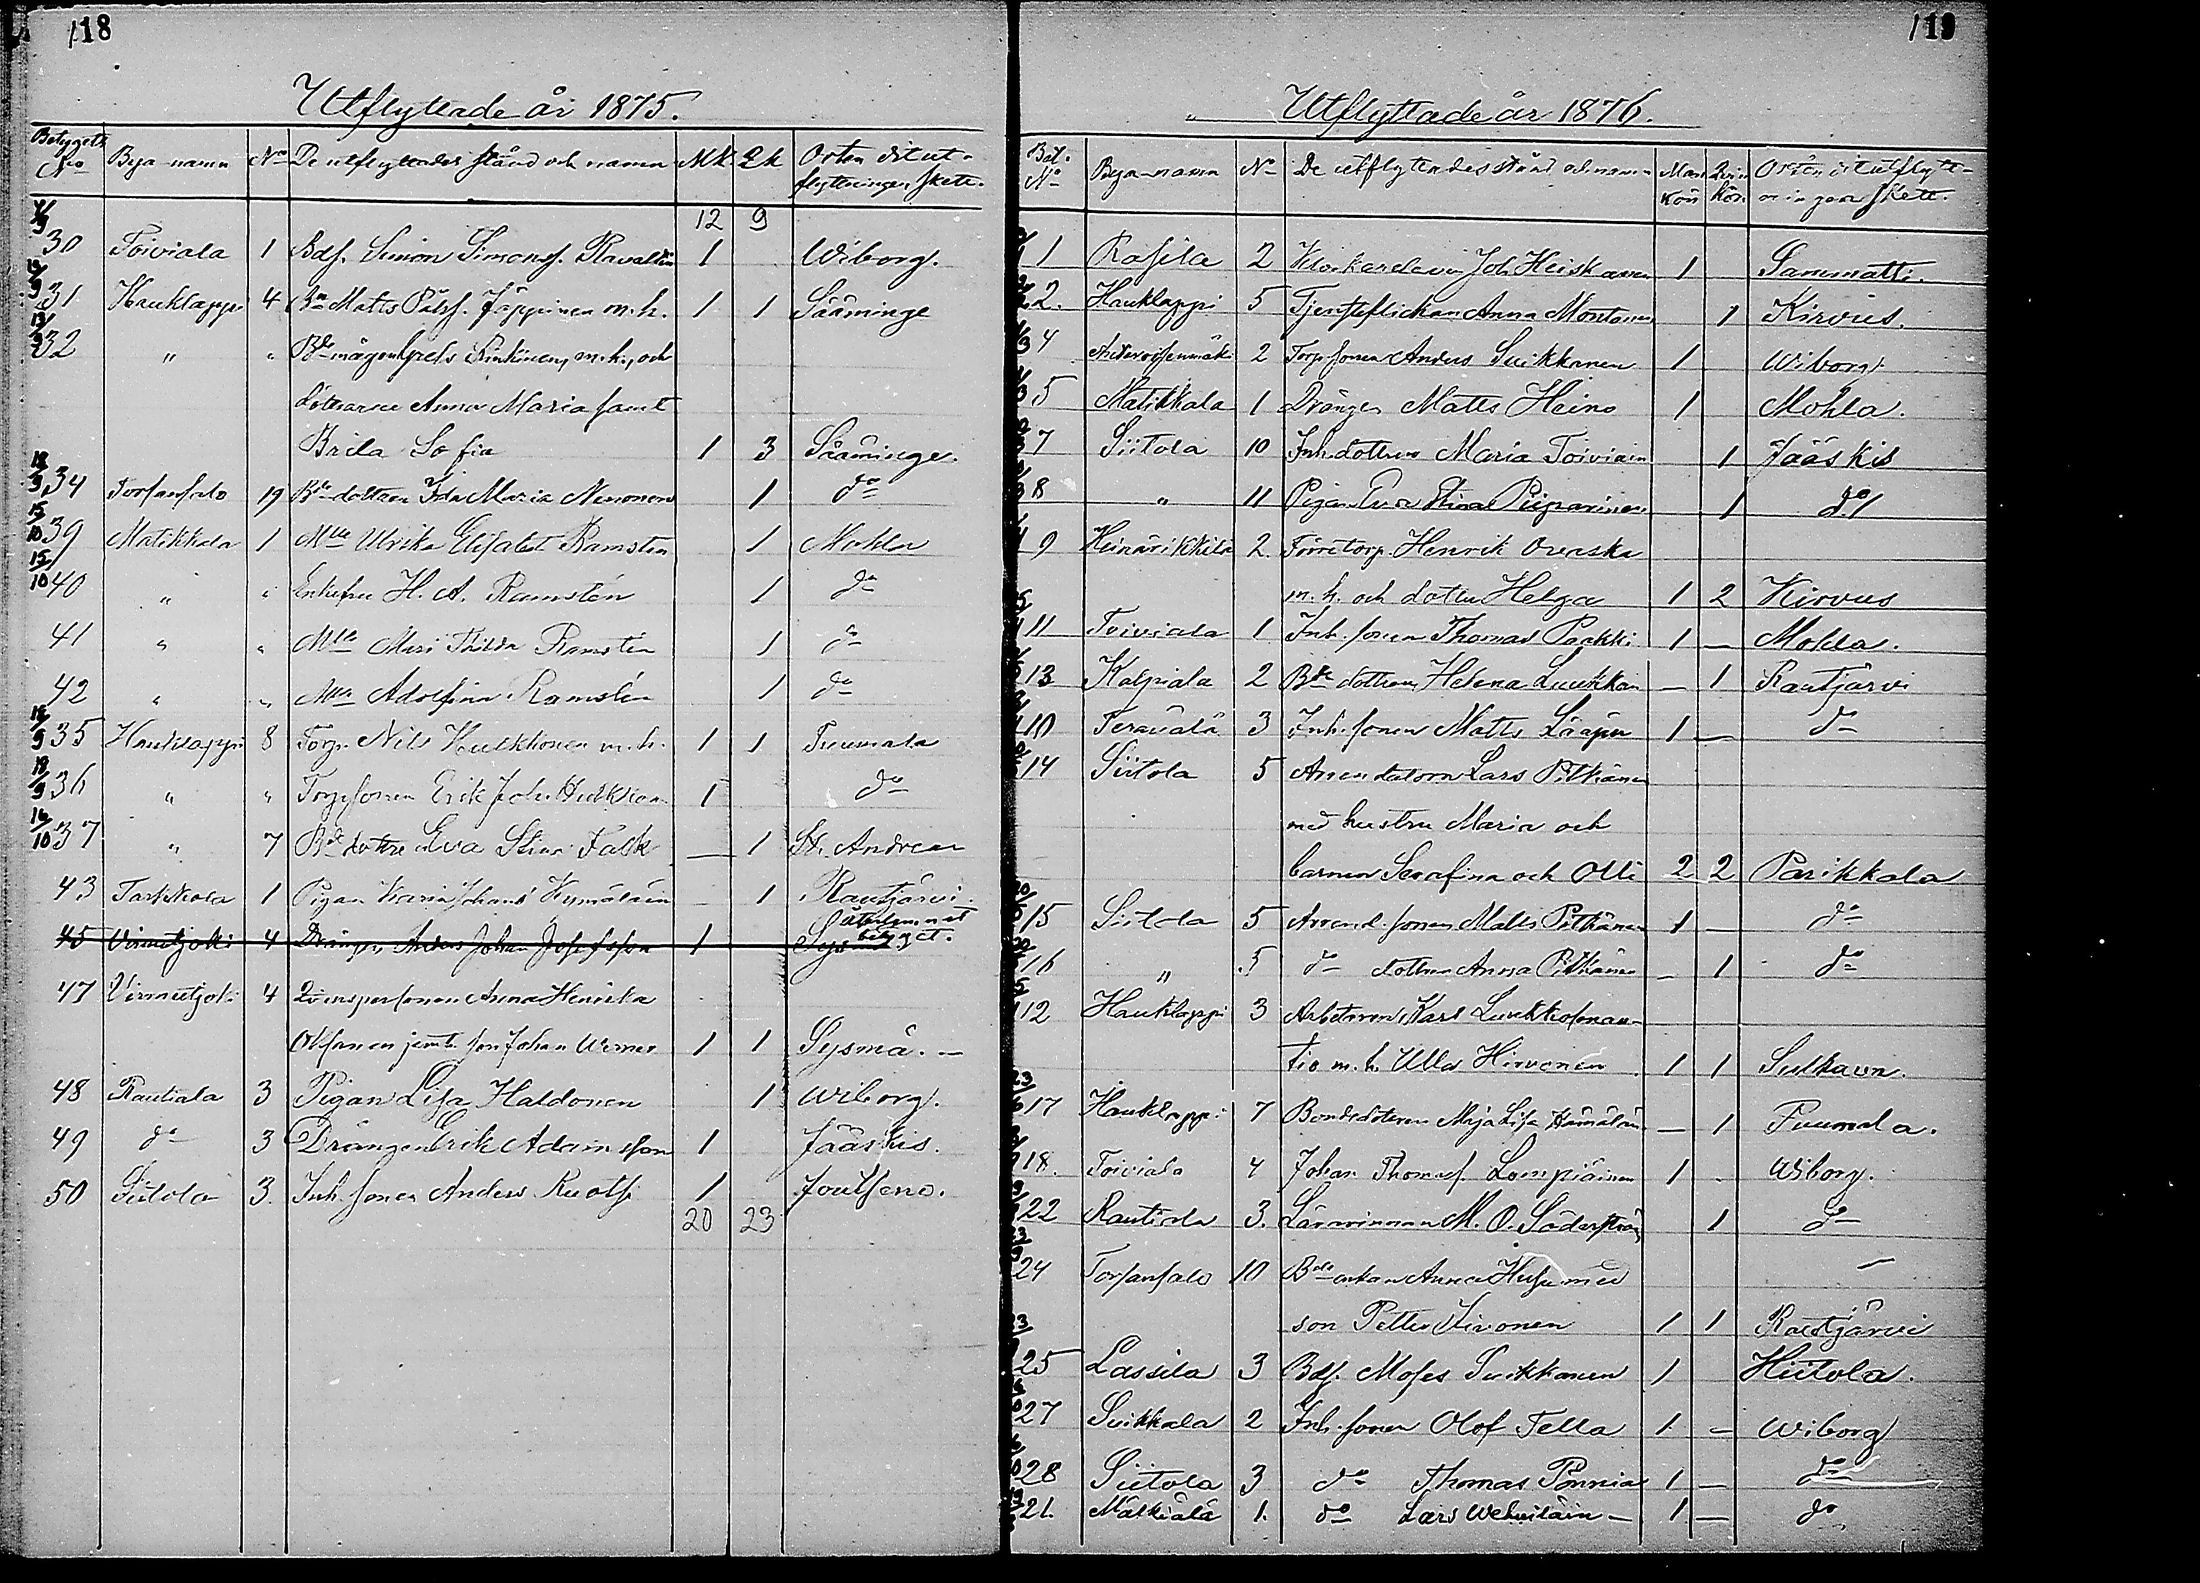 118
Utflyttade år 1875.
Betygets No Bya-namn No De utflyttades stånd och namn Mk. Qk Orten dit ut-
flyttningen skett.
12 9
4/9 30 Toiviala 1 Bdf. Simon Simonsf. Ravattin 1 Wiborg.
31 Hauklappi 4 Bn Matts Pålsf. Jäppinen m.h. 1 1 Sääminge
13/9 32 " " Bde mågen Grels Sinkinen, m.h., och
döttrarne Anna Maria samt
Brita Sofia 1 3 Sääminge.
18/9 34 Torsansalo 19 Bde dottren Ida Maria Nenonen 1 do
15/10 39 Matikkala 1 Mlle Ulrika Elisabet Ramstén 1 Mohla
15/10 40 " " Enkefru H. A. Ramstén 1 do
41 " " Mlle Mari Thilda Ramstén 1 do
42 " " Mlle Adolfina Ramstén 1 do
18/9 35 Hauklappi 8 Torp. Nils Hulkkonen m.h. 1 1 Puumala
18/9 36 " " Torpsonen Erik Joh. Hulkkonen 1 do
16/10 37 " 7 Bde dottren Eva Stina Falk — 1 St. Andreæ
43 Tarkkola 1 Pigan Karin Johansd Hymäläin 1 Rautjärvi.
45 Virmutjoki 4 Drängen Anders Johan Josefsson 1 Sys Återlemnat betyget.
47 Virmutjoki 4 Qvinspersonen Anna Henrika
Olsanen jemte son Johan Werner 1 1 Sysmä. —
48 Rautiala 3 Pigan Lisa Haldonen 1 Wiborg.
49 do 3 Drängen Erik Adamsson 1 Jääskis.
50 Siitola 3. Inh. sonen Anders Ruotsi 1 Joutseno.
20 23
119
Utflyttade år 1876.
Bet. No Bya-namn No De utflyttades stånd och namn Man kön Qvin kön Orten dit utflytt-
ningen skett.
1 Rasila 2 Klockaredrg Joh. Heiskanen 1 Sammatti.
2. Hauklappi 5 Tjensteflickan Anna Montonen 1 Kirvus.
4 2 Torpsonen Anders Suikkanen 1 Wiborg.
5 Matikkala 1 Drängen Matts Heino 1 Mohla.
7 Siitola 10 Inh. dottren Maria Toiviain 1 Jääskis
8 " 11 Pigan Eva Stina Pieparinen 1 do
9 Heinärikkilä 2. Förre torp. Henrik Ovaska
m.h. och dotter Helga 1 2 Kirvus
11 Toiviala 1 Inh. sonen Thomas Paakki 1 — Mohla.
13 Kalpiala 2 Bde dottren Helena Luukkain — 1 Rautjärvi
10 Teräväla 3 Inh. sonen Matts Lääpin 1 — do
14 Siitola 5 Arrendatorn Lars Pitkänen
med hustru Maria och
barnen Serafina och Olli 2 2 Parikkala
15 Siitola 5 Arrend. sonen Matts Pitkänen 1 — do
16 " 5 do dottren Anna Pitkänen — 1 do
12 Hauklappi 3 Arbetaren Karl Luukkosenau-
tio m.h. Ulla Hirvonen 1 1 Sulkava.
17 Hauklappi 7 Bondedottren Maja Lisa Hämäläin — 1 Puumala.
18. Toiviala 4 Johan Thomasf. Lampiainen 1 Wiborg.
22 Rautiala 3. Lärarinnan M. O. Söderström 1 do
24 Torsansalo 10 Bde enkan Anna Husu med
son Petter Kivonen 1 1 Rautjärvi
25 Lassila 3 Bdf. Moses Suikkanen 1 Hiitola.
27 Suikkala 2 Inh. sonen Olof Tella 1 — Wiborg
28 Siitola 3 do Thomas Pönniä 1 — do
21. Matkiälä 1. do Lars Wehviläin — 1 — do